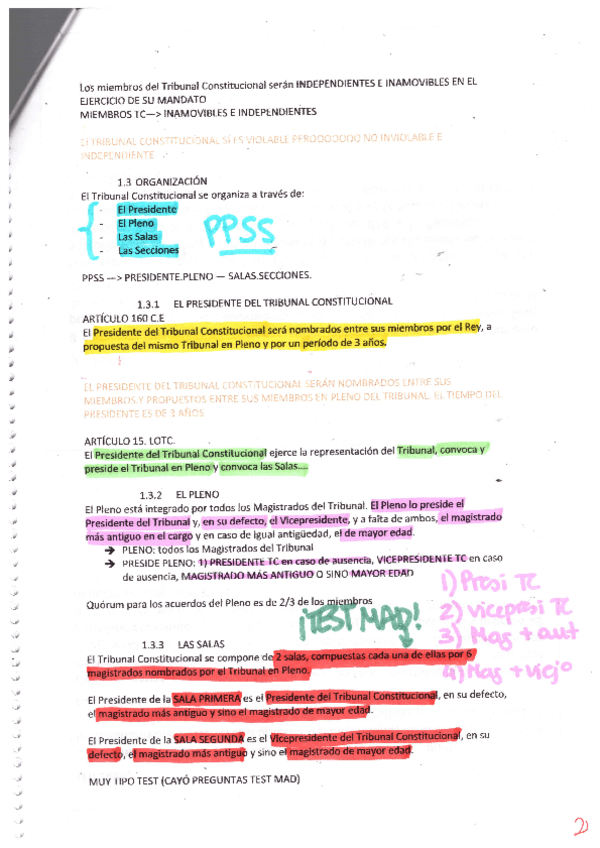 Los miembros del Tribunal Constitucional serán INDEPENDIENTES E INAMOVIBLES EN EL
EJERCICIO DE SU MANDATO
MIEMBROS TC—> INAMOVIBLES E INDEPENDIENTES
El TRIBUNAL CONSTITUCIONAL SÍ ES VIOLABLE PEROOOOOOO NO INVIOLABLE E
INDEPENDIENTE
1.3 ORGANIZACIÓN
El Tribunal Constitucional se organiza a través de:
- El Presidente
- El Pleno
- Las Salas
- Las Secciones
PPSS
PPSS —> PRESIDENTE.PLENO — SALAS.SECCIONES.
1.3.1 EL PRESIDENTE DEL TRIBUNAL CONSTITUCIONAL
ARTÍCULO 160 C.E
El Presidente del Tribunal Constitucional será nombrados entre sus miembros por el Rey, a
propuesta del mismo Tribunal en Pleno y por un período de 3 años.
EL PRESIDENTE DEL TRIBUNAL CONSTITUCIONAL SERÁN NOMBRADOS ENTRE SUS
MIEMBROS.Y PROPUESTOS ENTRE SUS MIEMBROS EN PLENO DEL TRIBUNAL. EL TIEMPO DEL
PRESIDENTE ES DE 3 AÑOS
ARTÍCULO 15. LOTC.
El Presidente del Tribunal Constitucional ejerce la representación del Tribunal, convoca y
preside el Tribunal en Pleno y convoca las Salas....
1.3.2 EL PLENO
El Pleno está integrado por todos los Magistrados del Tribunal. El Pleno lo preside el
Presidente del Tribunal y, en su defecto, el Vicepresidente, y a falta de ambos, el magistrado
más antiguo en el cargo y en caso de igual antigüedad, el de mayor edad.
➔ PLENO: todos los Magistrados del Tribunal
➔ PRESIDE PLENO: 1) PRESIDENTE TC en caso de ausencia, VICEPRESIDENTE TC en caso
de ausencia, MAGISTRADO MÁS ANTIGUO O SINO MAYOR EDAD
1) Presi TC
2) vicepresi TC
3) Mag + ant
4) Mag + viejo
Quórum para los acuerdos del Pleno es de 2/3 de los miembros
¡TEST MAD!
1.3.3 LAS SALAS
El Tribunal Constitucional se compone de 2 salas, compuestas cada una de ellas por 6
magistrados nombrados por el Tribunal en Pleno.
El Presidente de la SALA PRIMERA es el Presidente del Tribunal Constitucional, en su defecto,
el magistrado más antiguo y sino el magistrado de mayor edad.
El Presidente de la SALA SEGUNDA es el Vicepresidente del Tribunal Constitucional, en su
defecto, el magistrado más antiguo y sino el magistrado de mayor edad.
MUY TIPO TEST (CAYÓ PREGUNTAS TEST MAD)
2)